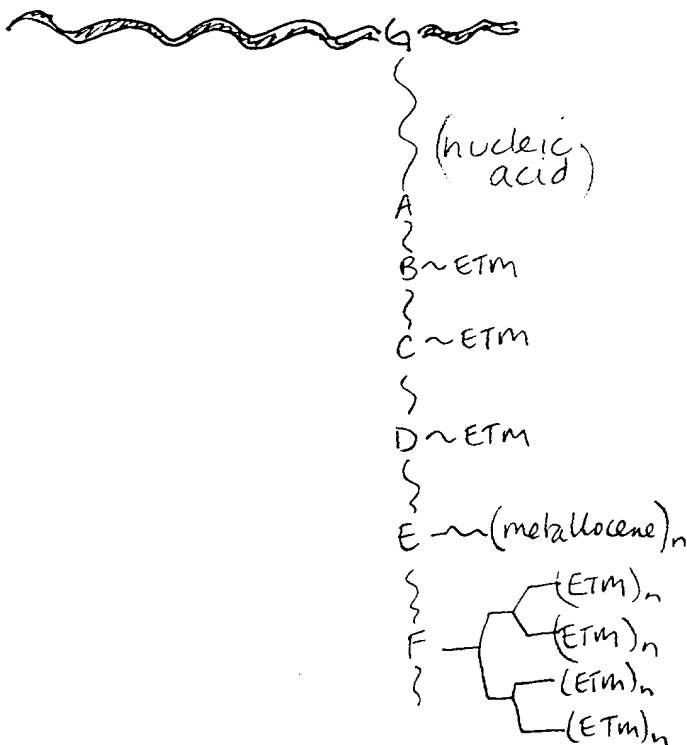 G
(nucleic
acid)
A
B~ETM
C~ETM
D~ETM
E (metallocene)n
(ETM)n
F (ETM)n
(ETM)n
(ETM)n